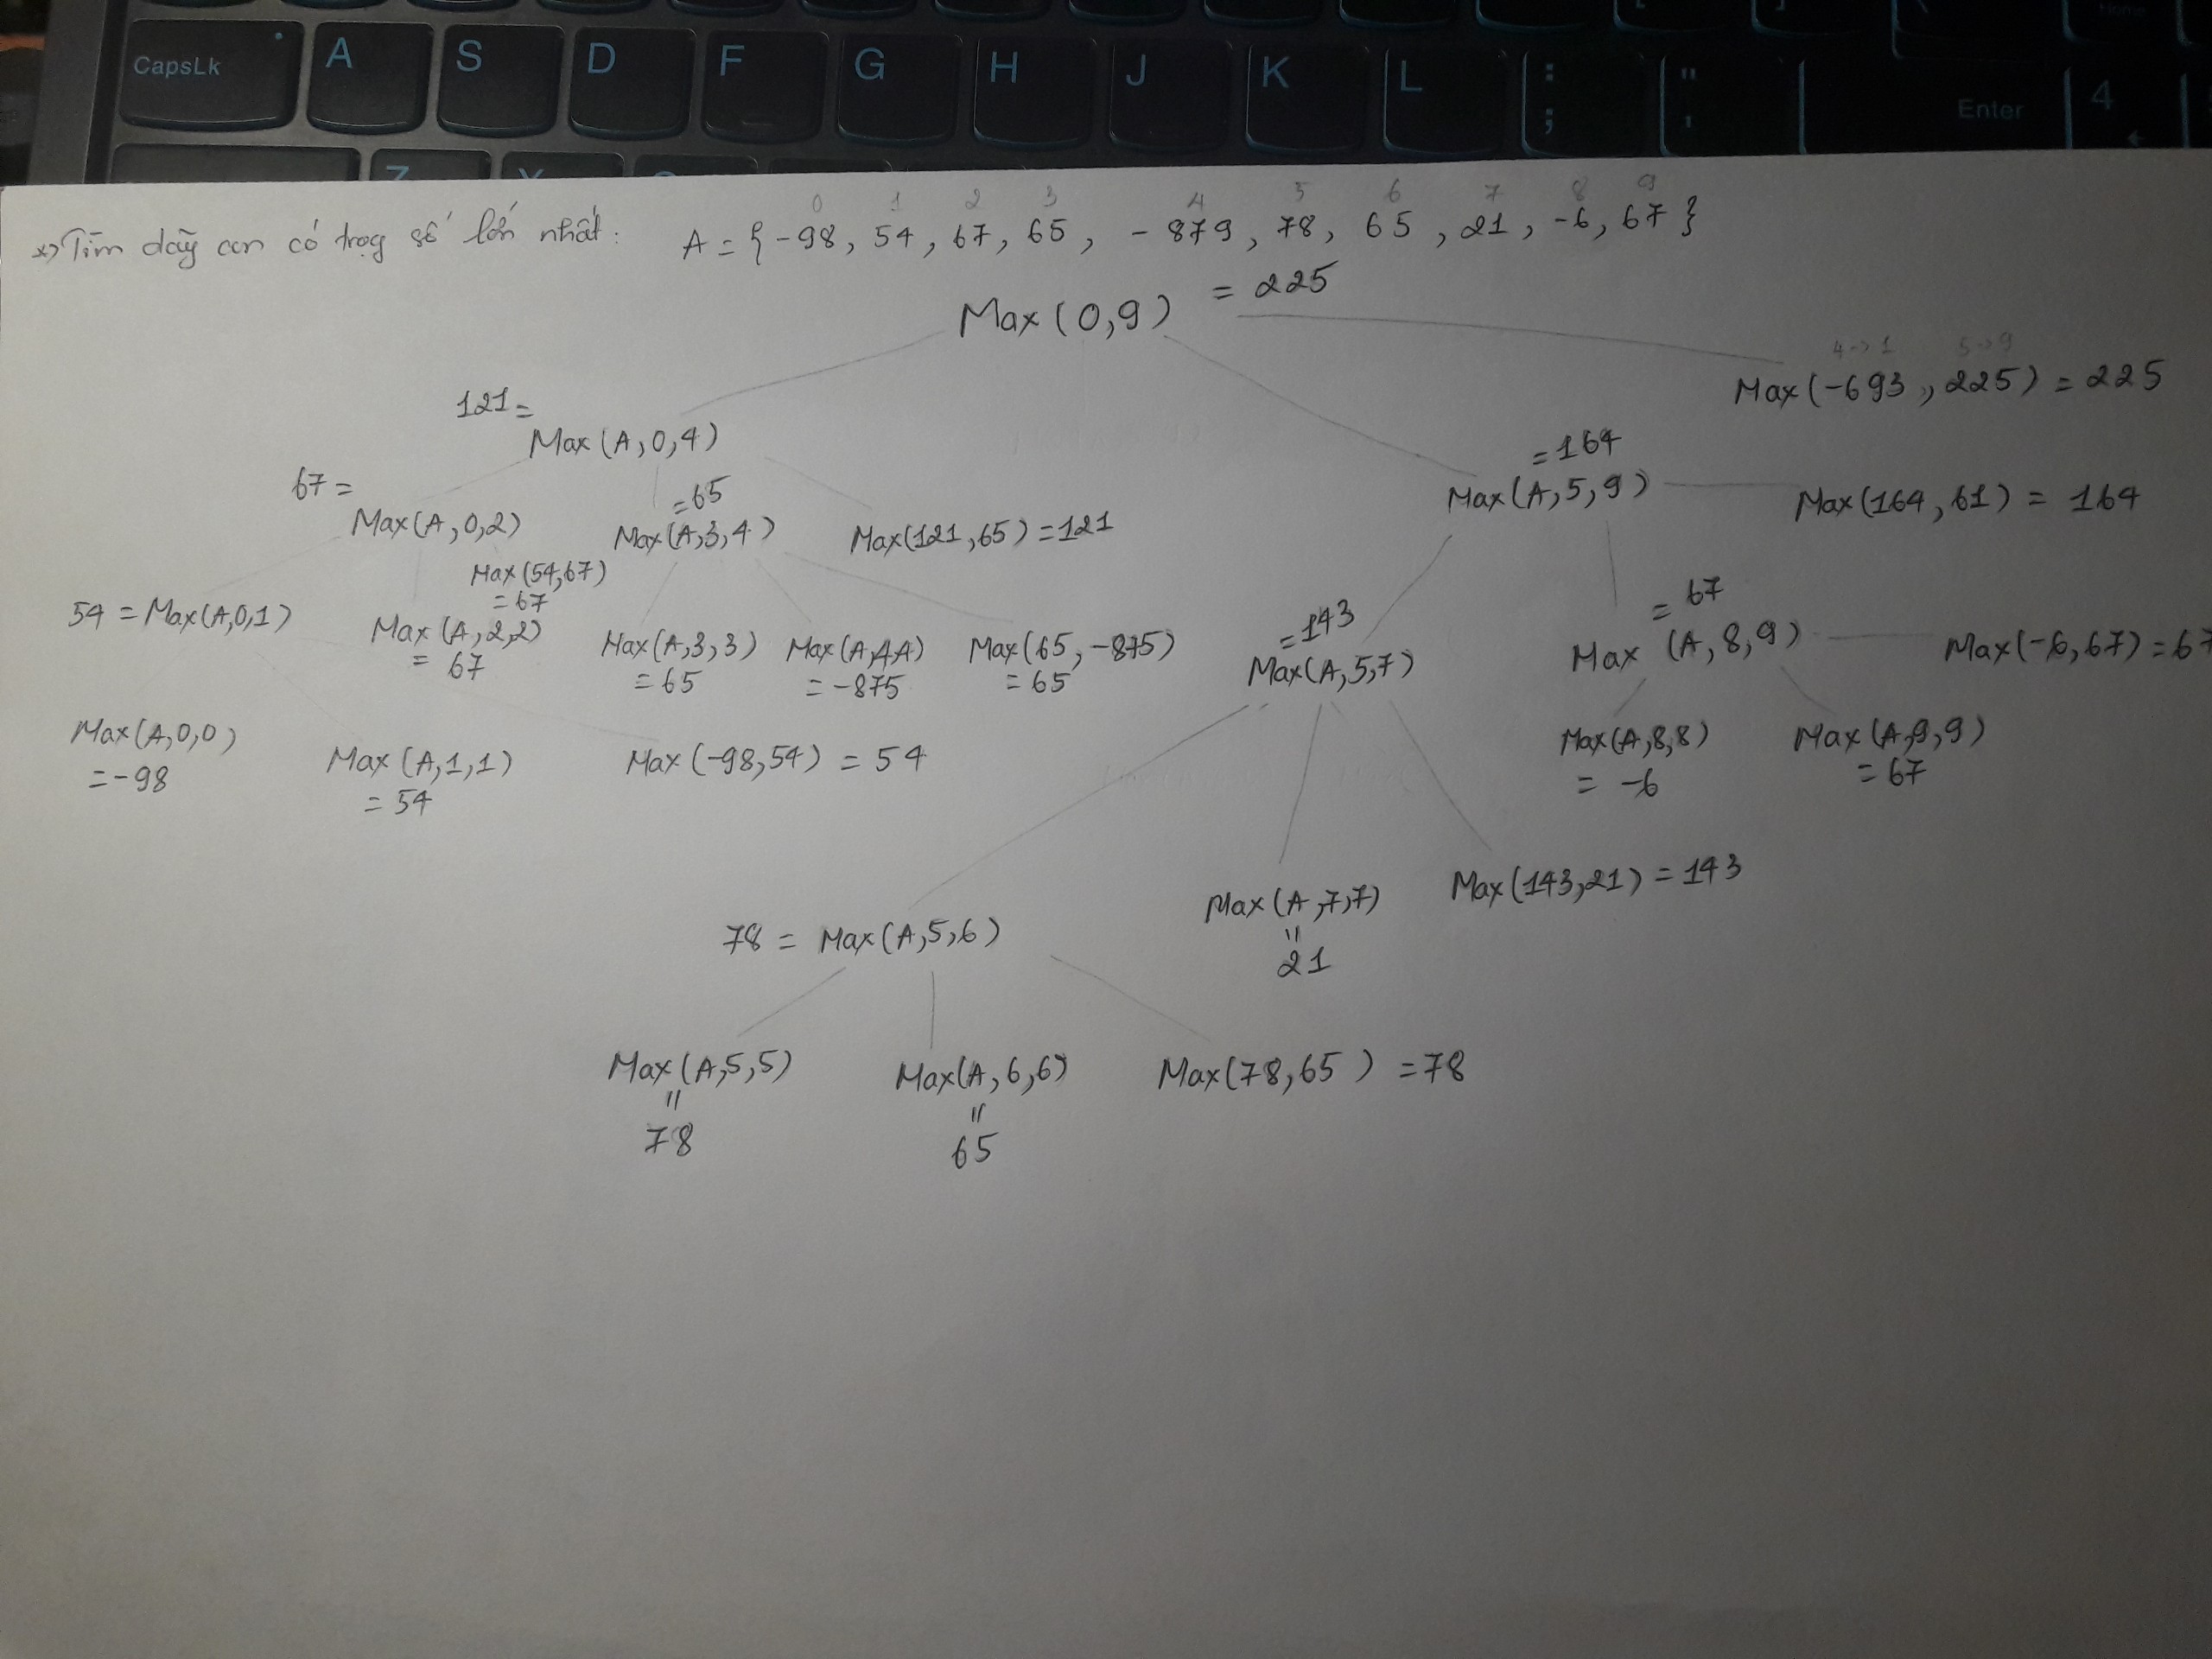 CapsLk A S D F G H J K L : ; " ' Enter 4
Z
0 1 2 3 4 5 6 7 8 9
*) Tìm dãy con có trọg số lớn nhất: A = { -98, 54, 67, 65, -879, 78, 65, 21, -6, 67 }
Max(0,9) = 225
4->1 5->9
Max(-693, 225) = 225
121 =
Max(A,0,4)
= 164
Max(A,5,9)
Max(164,61) = 164
67 =
Max(A,0,2)
= 65
Max(A,3,4)
Max(121,65) = 121
Max(54,67)
= 67
54 = Max(A,0,1)
Max(A,2,2)
= 67
Max(A,3,3)
= 65
Max(A,4,4)
= -875
Max(65,-875)
= 65
= 143
Max(A,5,7)
= 67
Max (A,8,9)
Max(-6,67) = 67
Max(A,0,0)
= -98
Max(A,1,1)
= 54
Max(-98,54) = 54
Max(A,8,8)
= -6
Max(A,9,9)
= 67
78 = Max(A,5,6)
Max(A,7,7)
=
21
Max(143,21) = 143
Max(A,5,5)
=
78
Max(A,6,6)
=
65
Max(78,65) = 78